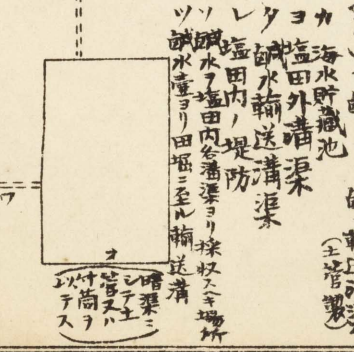 カ 海水貯蔵池
ヨ 塩田外溝渠
タ 鹹水輸送溝渠
レ 塩田内ノ堤防
ソ 鹹水ヲ塩田内各溝渠ヨリ採収スベキ場所
ツ 鹹水壺ヨリ田堀ニ至ル輸送溝
(土管製)
オ
(暗渠ニ
シテ土
管又ハ
竹筒ヲ
以テス)
ワ